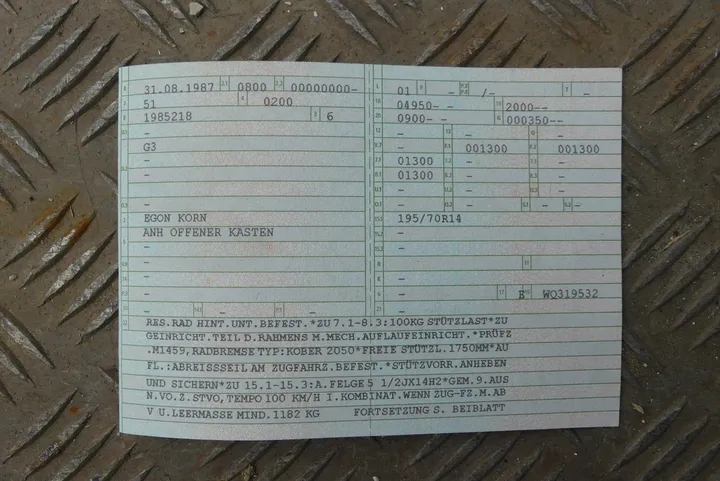 31.08.1987 0800 00000000-
51 0200
1985218 6
-
G3
-
-
-
EGON KORN
ANH OFFENER KASTEN
-
-
-
-
- -
01 - -/- -
04950- - 2000--
0900- - 000350--
- - -
- 001300 001300
01300 - -
01300 - -
- - -
- - - -
195/70R14
-
-
-
-
- E WQ319532
-
RES.RAD HINT.UNT.BEFEST.*ZU 7.1-8.3:100KG STÜTZLAST*ZU
GEINRICHT.TEIL D.RAHMENS M.MECH.AUFLAUFEINRICHT.*PRÜFZ
.M1459,RADBREMSE TYP:KOBER 2050*FREIE STÜTZL.1750MM*AU
FL.:ABREISSSEIL AM ZUGFAHRZ.BEFEST.*STÜTZVORR.ANHEBEN
UND SICHERN*ZU 15.1-15.3:A.FELGE 5 1/2JX14H2*GEM.9.AUS
N.VO.Z.STVO,TEMPO 100 KM/H I.KOMBINAT.WENN ZUG-FZ.M.AB
V U.LEERMASSE MIND.1182 KG FORTSETZUNG S. BEIBLATT